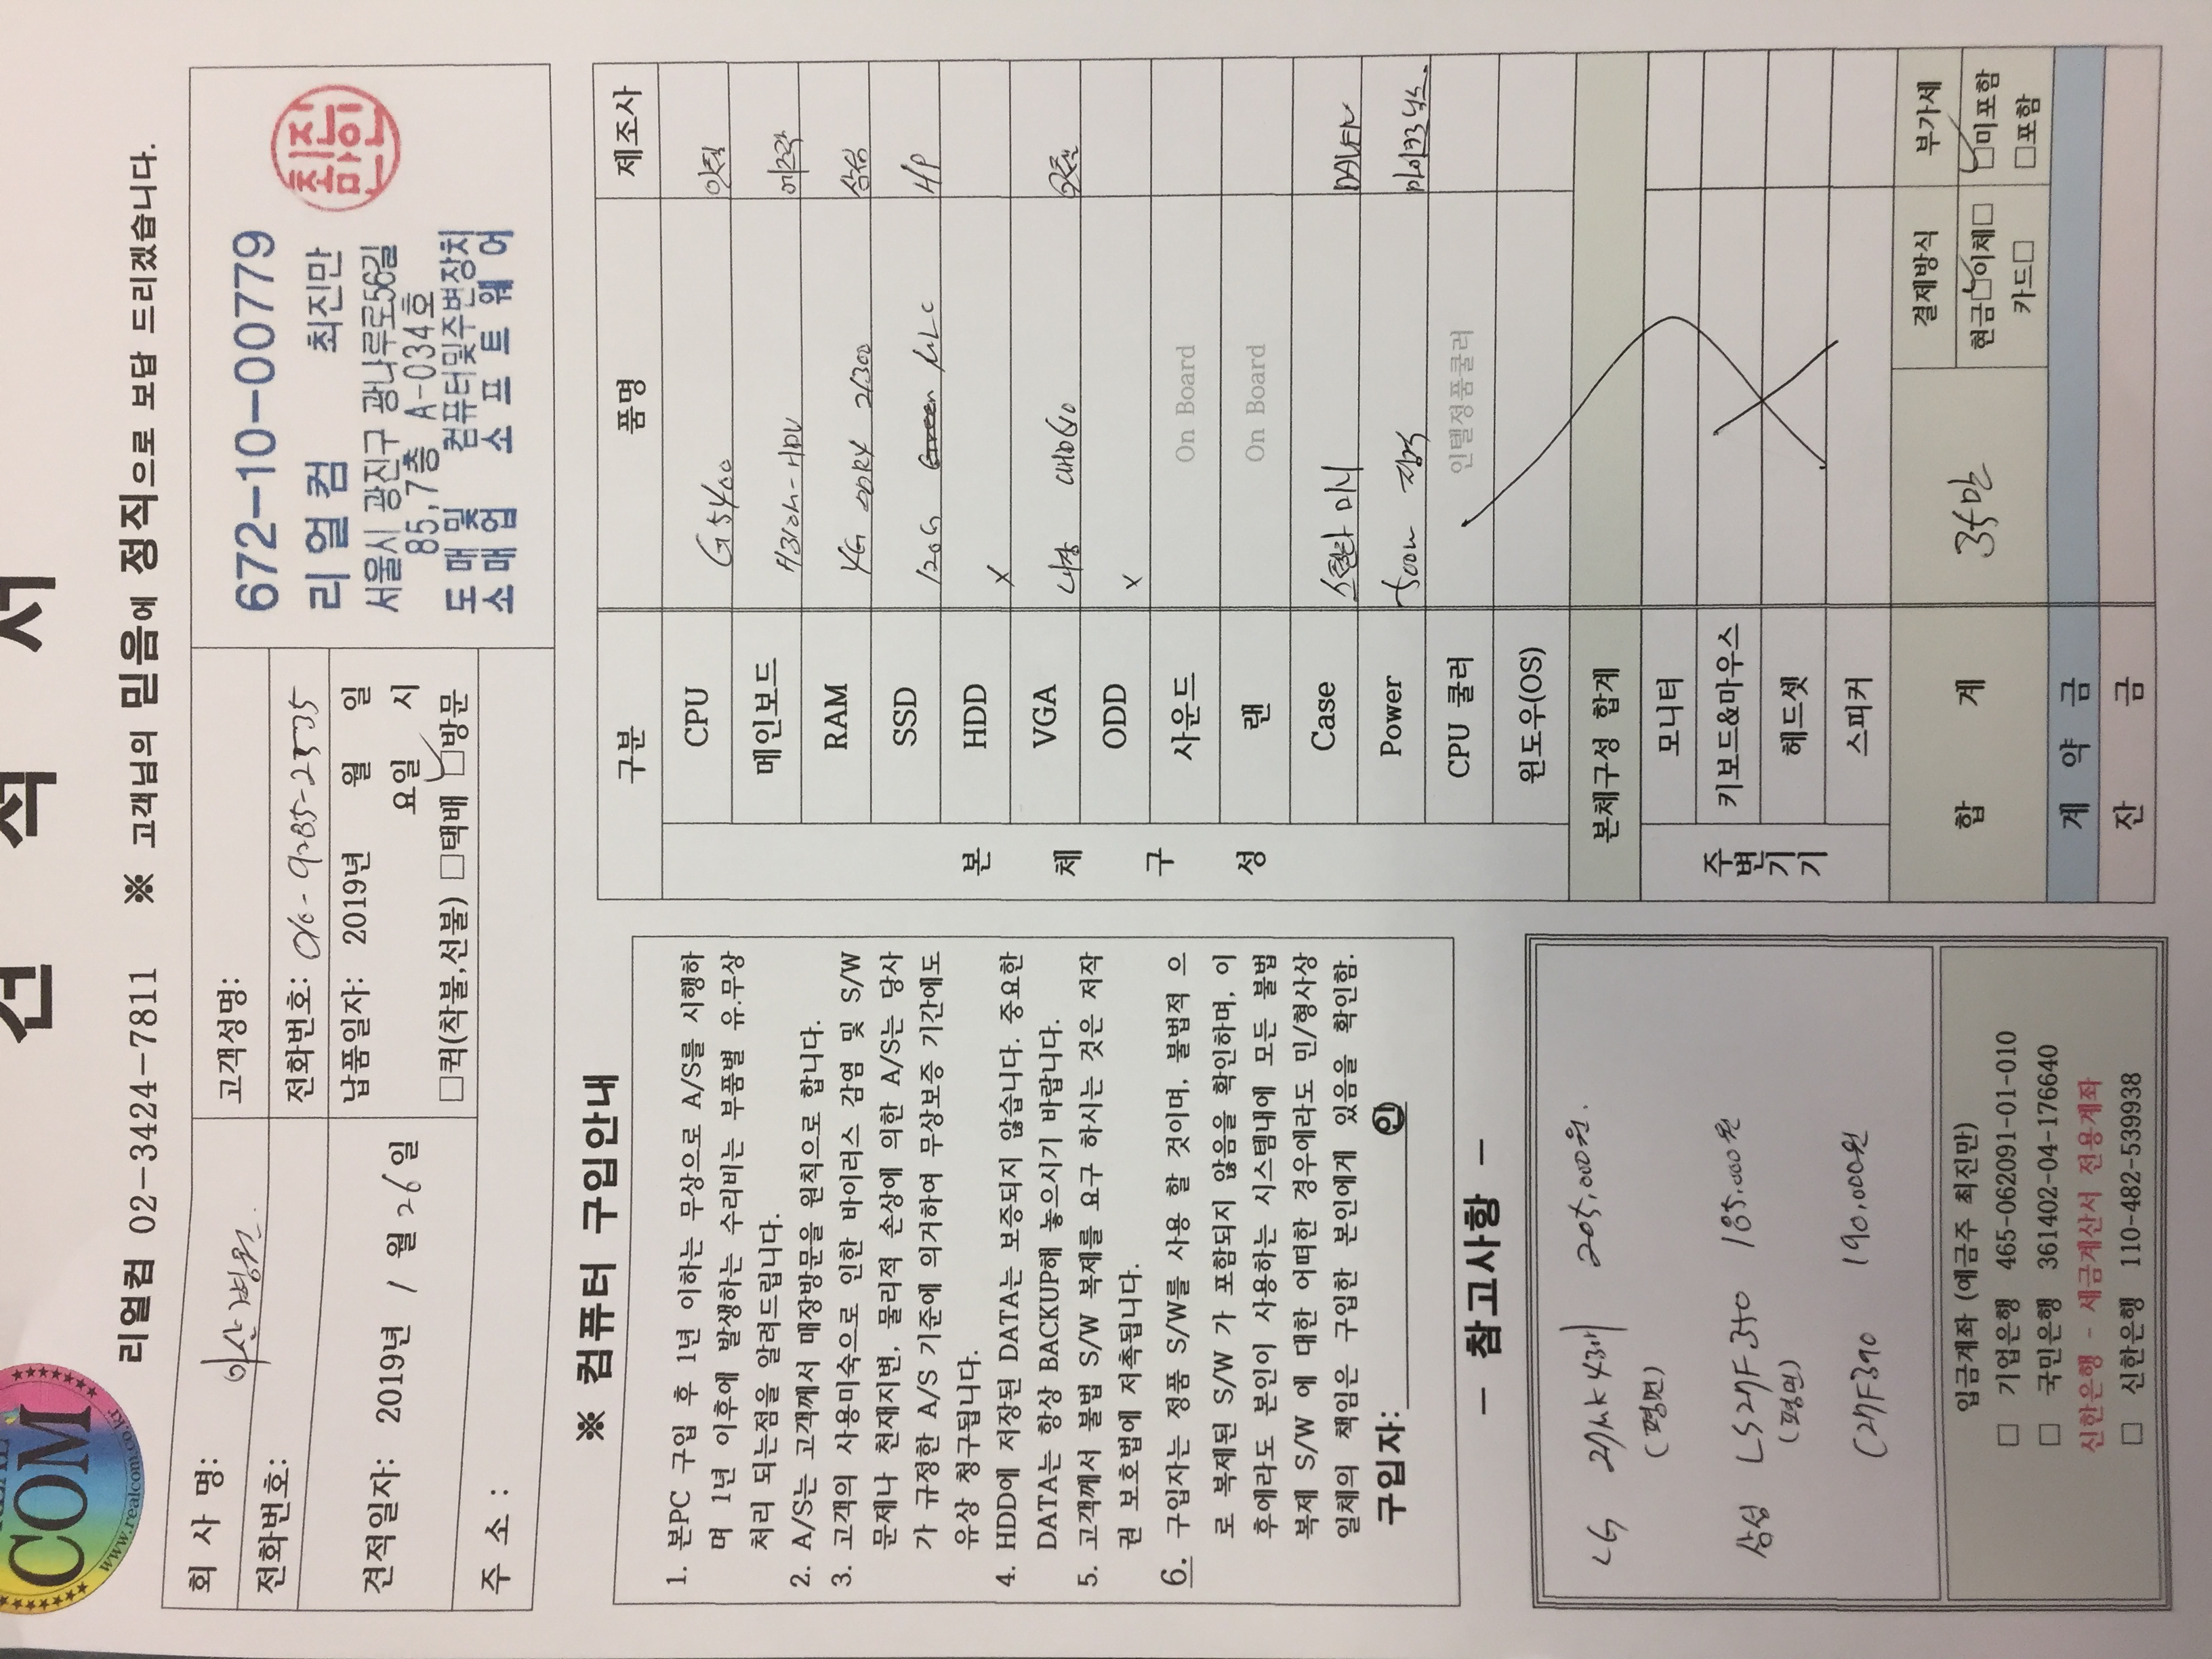 견 적 서
COM
www.realcom.co.kr
리얼컴 02-3424-7811 ※ 고객님의 믿음에 정직으로 보답 드리겠습니다.
회 사 명: 아산병원
고객성명:
전화번호:
전화번호: 010-9285-2535
견적일자: 2019년 1월 26일
납품일자: 2019년 월 일
요일 시
□퀵(착불,선불) □택배 □방문
주 소 :
672-10-00779
리얼컴 최진만
서울시 광진구 광나루로56길
85,7층 A-034호
도매및 컴퓨터및주변장치
소매업 소프트웨어
최진만인
※ 컴퓨터 구입안내
1. 본PC 구입 후 1년 이하는 무상으로 A/S를 시행하
며 1년 이후에 발생하는 수리비는 부품별 유.무상
처리 되는점을 알려드립니다.
2. A/S는 고객께서 매장방문을 원칙으로 합니다.
3. 고객의 사용미숙으로 인한 바이러스 감염 및 S/W
문제나 천재지변, 물리적 손상에 의한 A/S는 당사
가 규정한 A/S 기준에 의거하여 무상보증 기간에도
유상 청구됩니다.
4. HDD에 저장된 DATA는 보증되지 않습니다. 중요한
DATA는 항상 BACKUP해 놓으시기 바랍니다.
5. 고객께서 불법 S/W 복제를 요구 하시는 것은 저작
권 보호법에 저촉됩니다.
6. 구입자는 정품 S/W를 사용 할 것이며, 불법적 으
로 복제된 S/W 가 포함되지 않음을 확인하며, 이
후에라도 본인이 사용하는 시스템내에 모든 불법
복제 S/W 에 대한 어떠한 경우에라도 민/형사상
일체의 책임은 구입한 본인에게 있음을 확인함.
구입자: 인
- 참고사항 -
LG 27MK43 205,000원.
(평면)
삼성 LS27F350 185,000원
(평면)
C27F390 190,000원
입금계좌 (예금주 최진만)
□ 기업은행 465-062091-01-010
□ 국민은행 361402-04-176640
신한은행 - 세금계산서 전용계좌
□ 신한은행 110-482-539938
구분 품명 제조사
본 체 구 성
CPU G5400 인텔
메인보드 H310M-HDV 에즈락
RAM 4G DDR4 21300 삼성
SSD 120G Green MLC HP
HDD X
VGA 내장 UHD610 인텔
ODD X
사운드 On Board
랜 On Board
Case 스텔라 미니 DAVEN
Power 500W 정격 마이크로닉스
CPU 쿨러 인텔정품쿨러
윈도우(OS)
본체구성 합계
주변기기
모니터
키보드&마우스
헤드셋
스피커
합 계 35만
결제방식 부가세
현금□이체□ □미포함
카드□ □포함
계 약 금
잔 금